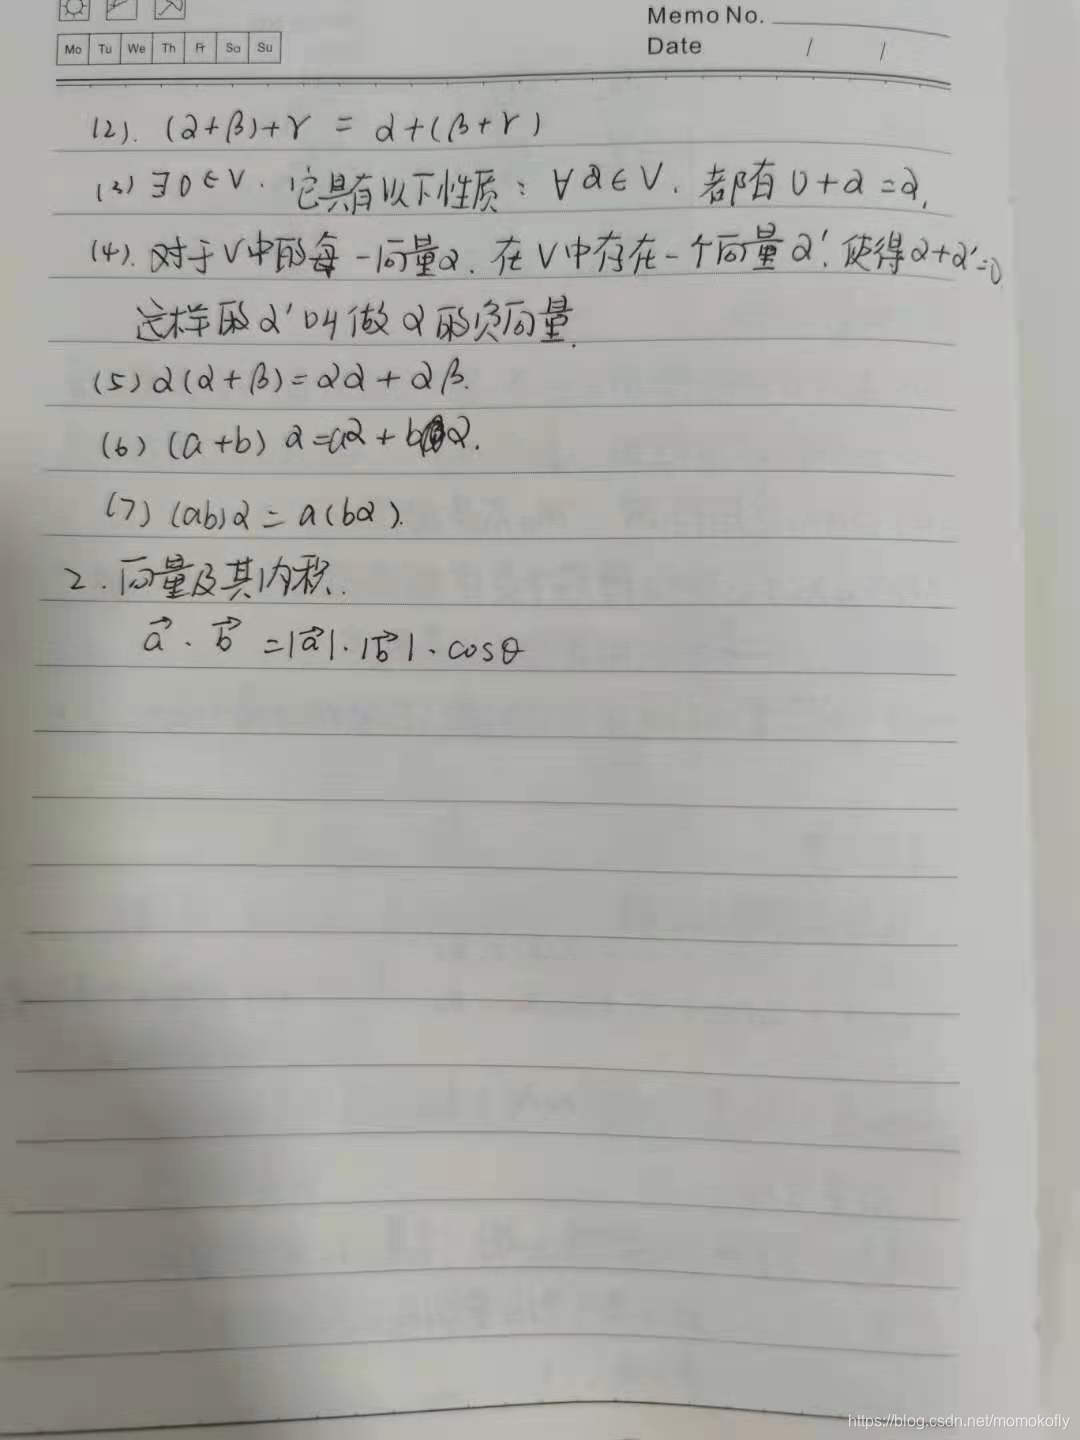 Memo No.
Mo Tu We Th Fr Sa Su
Date / /
(2). (α+β)+γ = α+(β+γ)
(3) ∃0∈V. 它具有以下性质: ∀α∈V. 都有0+α=α.
(4). 对于V中的每一向量α. 在V中存在一个向量α'. 使得α+α'=0
这样的α'叫做α的负向量.
(5) α(α+β)=αα+αβ.
(6) (a+b)α=aα+bα.
(7) (ab)α=a(bα).
2. 向量及其内积.
a⃗ · b⃗ =|a⃗|·|b⃗|·cosθ
https://blog.csdn.net/momokofly